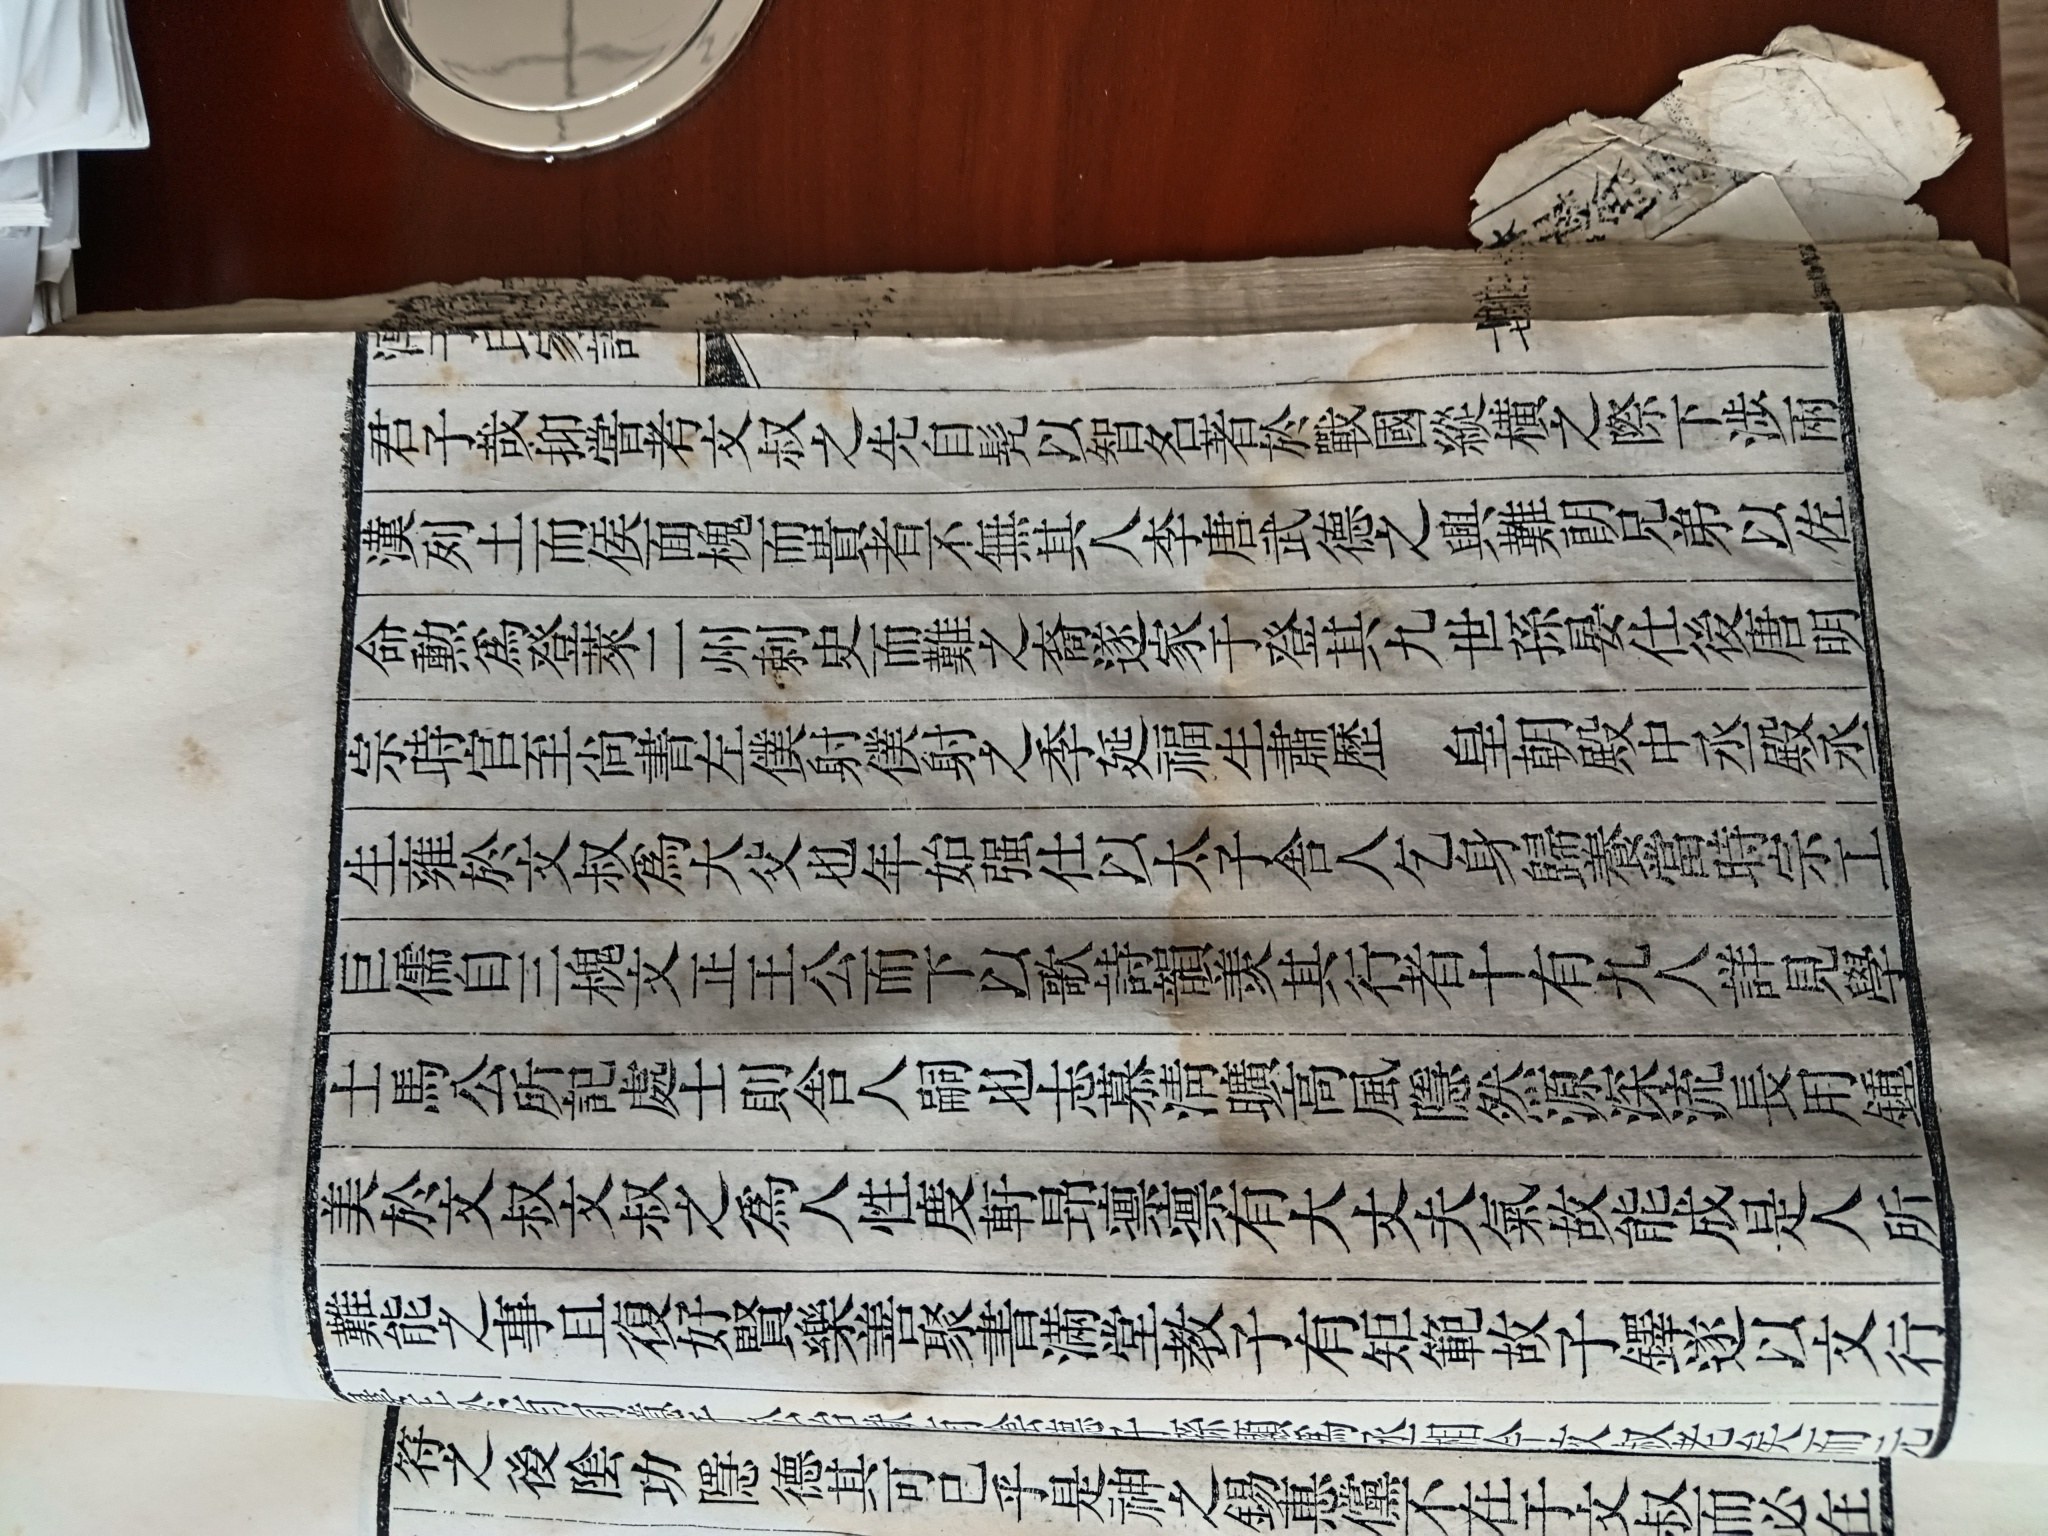 淳于氏家譜
君子哉抑嘗考文叔之先自髠以智名著於戰國縱橫之際下涉兩
漢列土而侯面槐而貴者不無其人李唐武德之興難朗兄弟以佐
命勳爲登萊二州刺史而難之裔遂家于登其九世孫晏仕後唐明
宗時官至尚書左僕射僕射之季延福生肅歷 皇朝殿中丞殿丞
生雍於文叔爲大父也年始强仕以太子舍人乞身歸養當時宗工
巨儒自三槐文正王公而下以歌詩韻羡其行者十有九人詳見學
士馬公所記處士則舍人嗣也志慕清曠高風隱然源深流長用鍾
美於文叔文叔之爲人性度軒昂凜凜有大丈夫氣故能成是人所
難能之事且復好賢樂善聚書滿堂教子有矩範故子鐸遂以文行
丞相今文叔老矣而元
符之後陰功隱德其可已乎是神之錫惠儻不在于文叔而必在